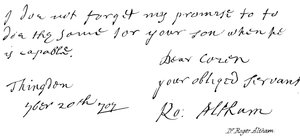 I doe not forget my promise to to
doe the same for your son when he
is capable.
Dear Cozen
your obliged servant
Thingdon
7ber 20th 707
Ro: Altham
Dr Roger Altham